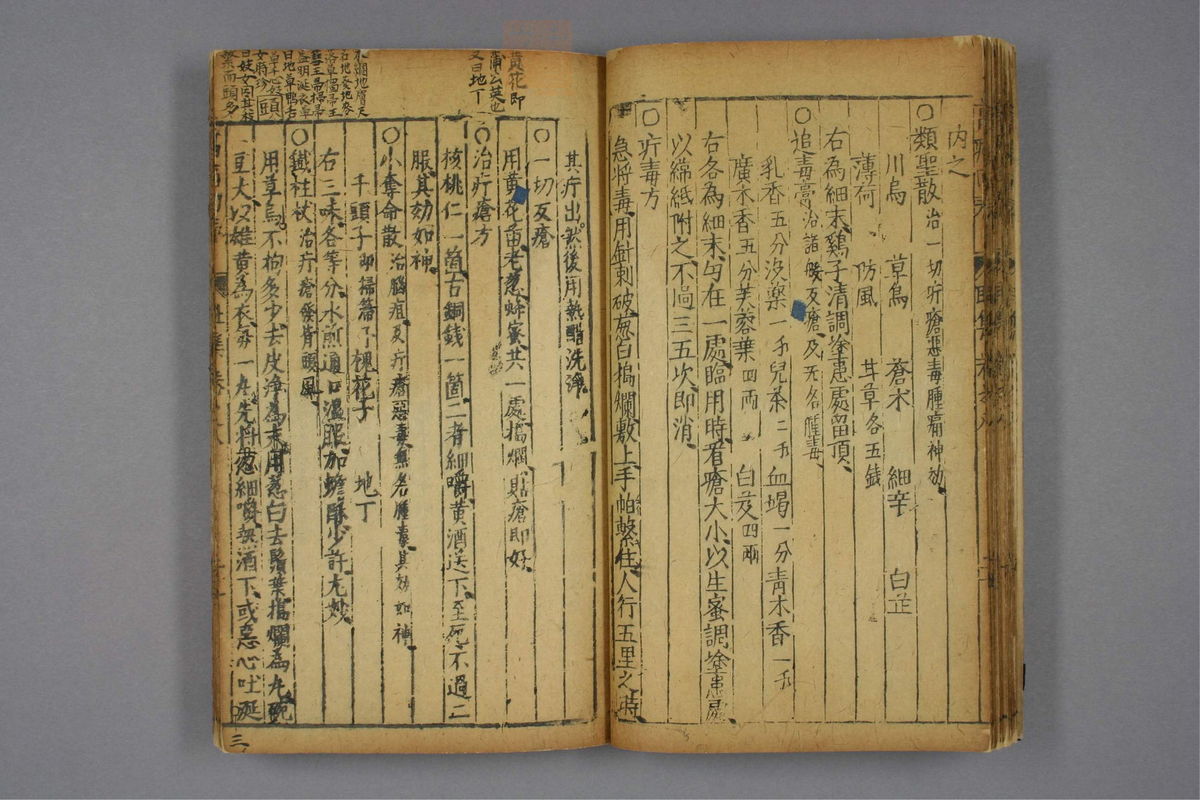 内之
○類聖散治一切疔瘡惡毒腫痛神効
川烏 草烏 蒼朮 細辛 白芷
薄荷 防風 甘草各五錢
右為細末鷄子清調塗患處留頂
○追毒膏治諸般反瘡及无名腫毒
乳香五分 沒藥一 兒茶二 血竭一分 青木香一
廣木香五分 芙蓉葉四兩 白芨四兩
右各為細末勻在一處臨用時看瘡大小以生蜜調塗患處
以綿紙附之不過三五次即消
○疔毒方
急將毒用針刺破葱白搗爛敷上手帕繫住人行五里之時
其疔出然後用熱醋洗淨
○一切反瘡
用黄花苗老葱蜂蜜共一處搗爛貼瘡即好
○治疔瘡方
核桃仁一箇古銅錢一箇二者細嚼黄酒送下至死不過二
服其効如神
○小奪命散治腦疽反疔瘡惡毒無名腫毒其効如神
千頭子即掃箒子 槐花子 地丁
右三味各等分水煎通口溫服加蟾酥少許尤妙
○鐵柱杖治疔瘡發背頭風
用草烏不拘多少去皮淨為末用葱白去鬚葉搗爛為丸豌
豆大以雄黄為衣每一丸先將葱細嚼熱酒下或惡心吐涎
黄花即
蒲公英也
又曰地丁
三